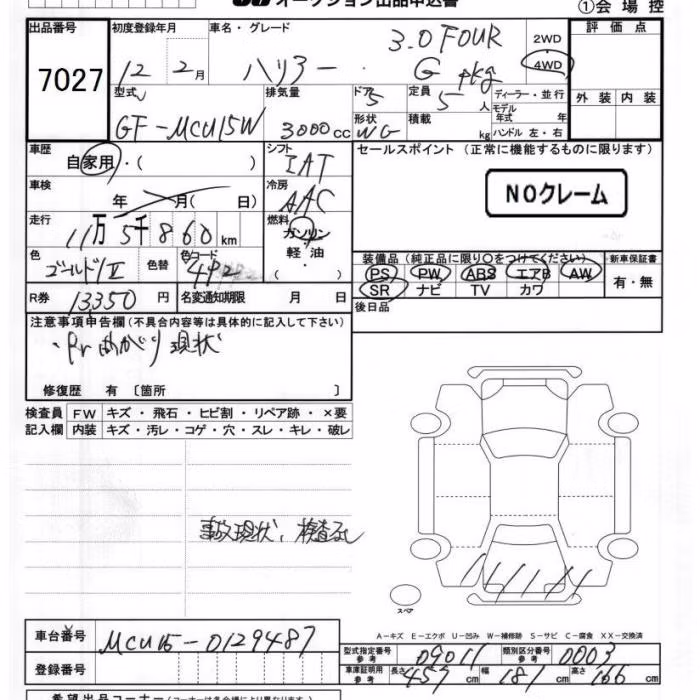 オークション出品申込書
①会場控
出品番号 初度登録年月 車名・グレード 評価点
7027 12 2月 ハリアー ・ 3.0 FOUR G pkg 2WD 4WD
型式 排気量 ドア 5 定員 5人 ディーラー・並行 外装 内装
GF-MCU15W 3000cc 形状 WG 積載 kg モデル年式 年 ハンドル 左・右
車歴 自家用・( ) シフト IAT セールスポイント(正常に機能するものに限ります)
車検 年 月( 日) 冷房 AAC NOクレーム
走行 11万5千860km 燃料 ガソリン・軽油 ( )
色 ゴールドⅡ 色替 色コード 4P2 装備品(純正品に限り○をつけてください) 新車保証書
PS PW ABS エアB AW 有・無
SR ナビ TV カワ
R券 13,350円 名変通知期限 月 日 後日品
注意事項申告欄(不具合内容等は具体的に記入して下さい)
現状
修復歴 有 〔箇所 〕
検査員 FW キズ・飛石・ヒビ割・リペア跡・×要
記入欄 内装 キズ・汚レ・コゲ・穴・スレ・キレ・破レ
事故現状、検査なし
スペア
A-キズ E-エクボ U-凹み W-補修跡 S-サビ C-腐食 XX-交換済
車台番号 MCU15-0129487 型式指定番号 参考 09011 類別区分番号 参考 0003
登録番号 車庫証明用 参考 長さ 457cm 幅 181cm 高さ 166cm
希望出品コーナー(コーナーは各会場により異なります)